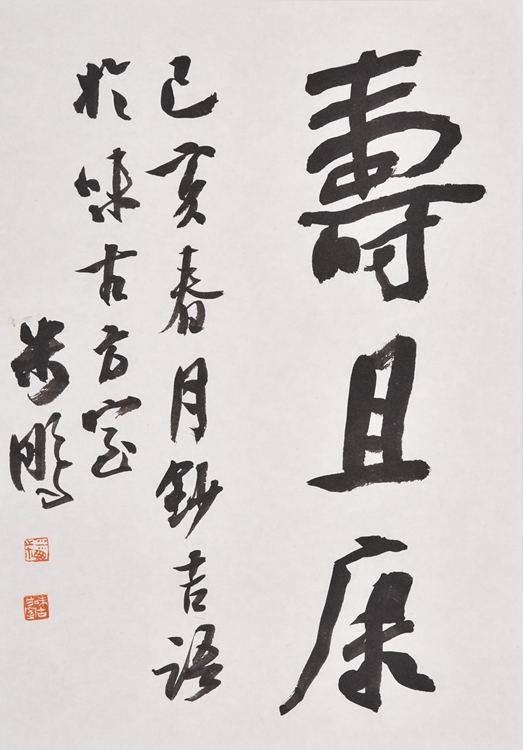 壽且康
己亥春月鈔吉語
於味古方室
米鵬